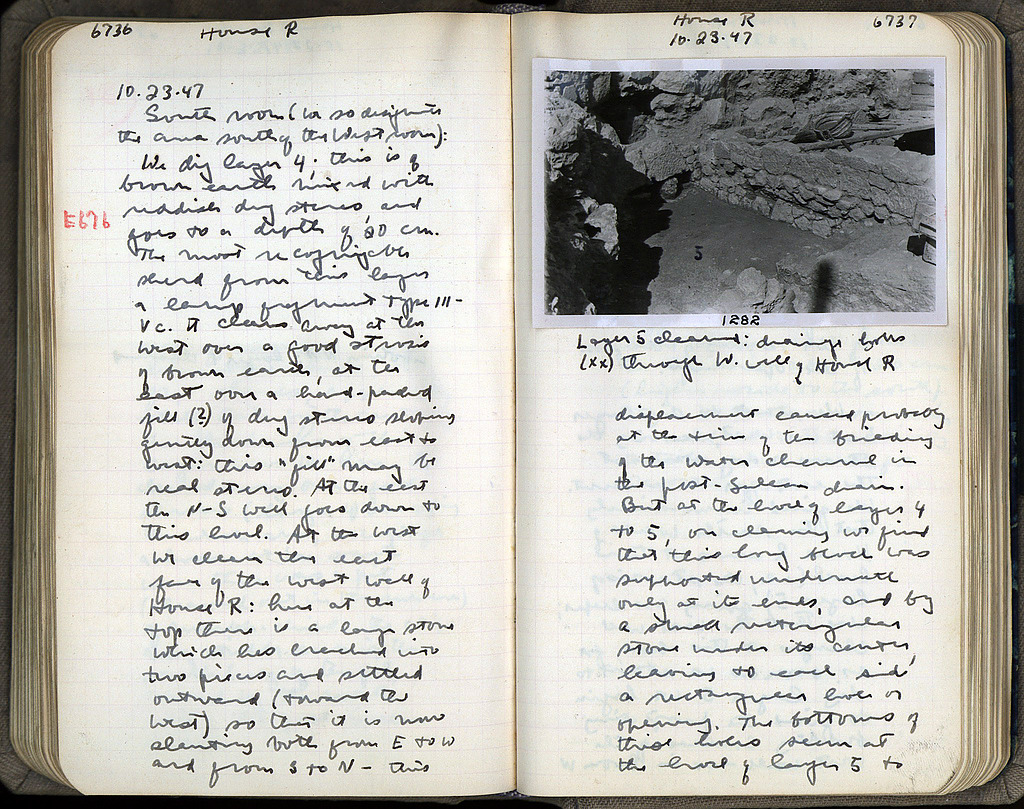 6736
House R
10.23.47
South room (we so designate
the area south of the West room):
We dig layer 4; this is of
brown earth mixed with
reddish dug stereo, and
E676
goes to a depth of 20 cm.
The most recognizable
sherd from this layer
a lamp fragment type III-
V c. It cleans away at the
west over a good stereo
of brown earth, at the
east over a hard-packed
fill (?) of dug stereo sloping
gently down from east to
west: this "fill" may be
real stereo. At the east
the N-S wall goes down to
this level. At the west
we clean the east
face of the west wall of
House R: here at the
top there is a large stone
which has cracked into
two pieces and settled
outward (toward the
west) so that it is now
slanting both from E to W
and from S to N - this
House R
6737
10.23.47
5
1282
Layer 5 cleared: drainage holes
(xx) through W. wall of House R
displacement caused probably
at the time of the building
of the water channel in
the post-Sullan drain.
But at the level of layer 4
to 5, on cleaning we find
that this long block was
supported underneath
only at its ends, and by
a small rectangular
stone under its center,
leaving to each side
a rectangular hole or
opening. The bottoms of
these holes seem at
the level of layer 5 to